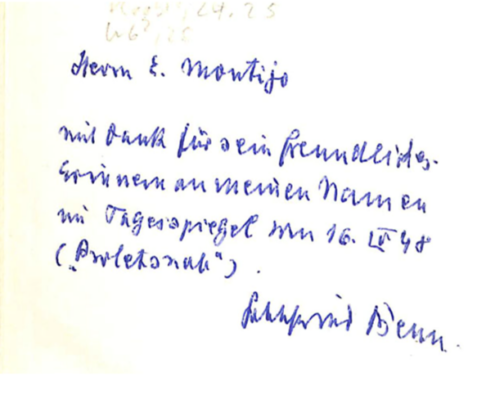 Herrn E. Montijo
mit Dank für sein freundliches
Erinnern an meinen Namen
im Tagesspiegel vom 16. IX 48
("Proletariat").
Gottfried Benn.